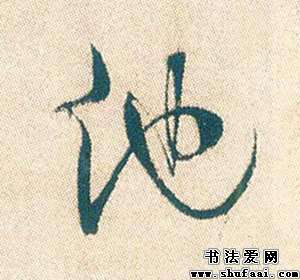 池
书法爱网
www.shufaai.com